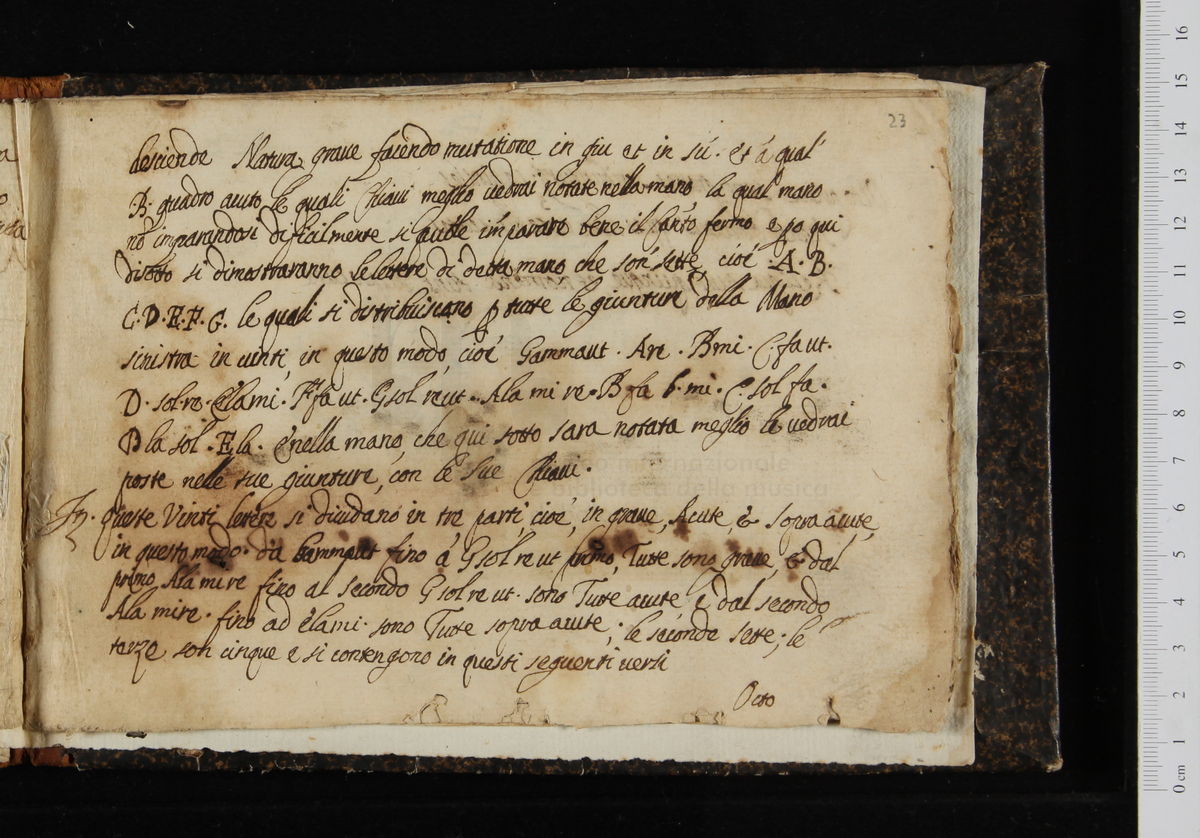 23
desciende Natura grave facendo mutatione in giu et in sù. et á qual
B. quadro acuto le quali Chiavi meglio vedrai notate nella mano la qual mano
nō imparandosi dificilmente si puole imparare bene il canto fermo e po qui
disotto si dimostraranno le letere di detta mano che son sette cioé .A.B.
C.D.E.F.G. le quali si distribuiscano p tutte le giunture della Mano
sinistra in vinti, in questo modo, cioé Gammaut. Are. Bmi. C.faut.
D. solre. Elami. Ffa ut. Gsol reut. Ala mi re. B fa b. mi. C. sol fa.
D la sol. E la. é nella mano, che qui sotto sara notata meglio le vedrai
poste nelle sue giunture, con le sue Chiavi.
queste Vinti letere si dividano in tre parti cioé, in grave, Acute & sopra acute,
in questo modo. da Gammaut fino á Gsol re ut primo, Tutte sono grave, & dal
primo Ala mi re fino al secondo Gsol re ut. sono Tutte acute, e dal secondo
Ala mire. fino ad Elami. sono Tutte sopra acute; le seconde sette; le
terze son cinque e si contengono in questi seguenti versi
Octo
16
15
14
13
12
11
10
9
8
7
6
5
4
3
2
1
0 cm